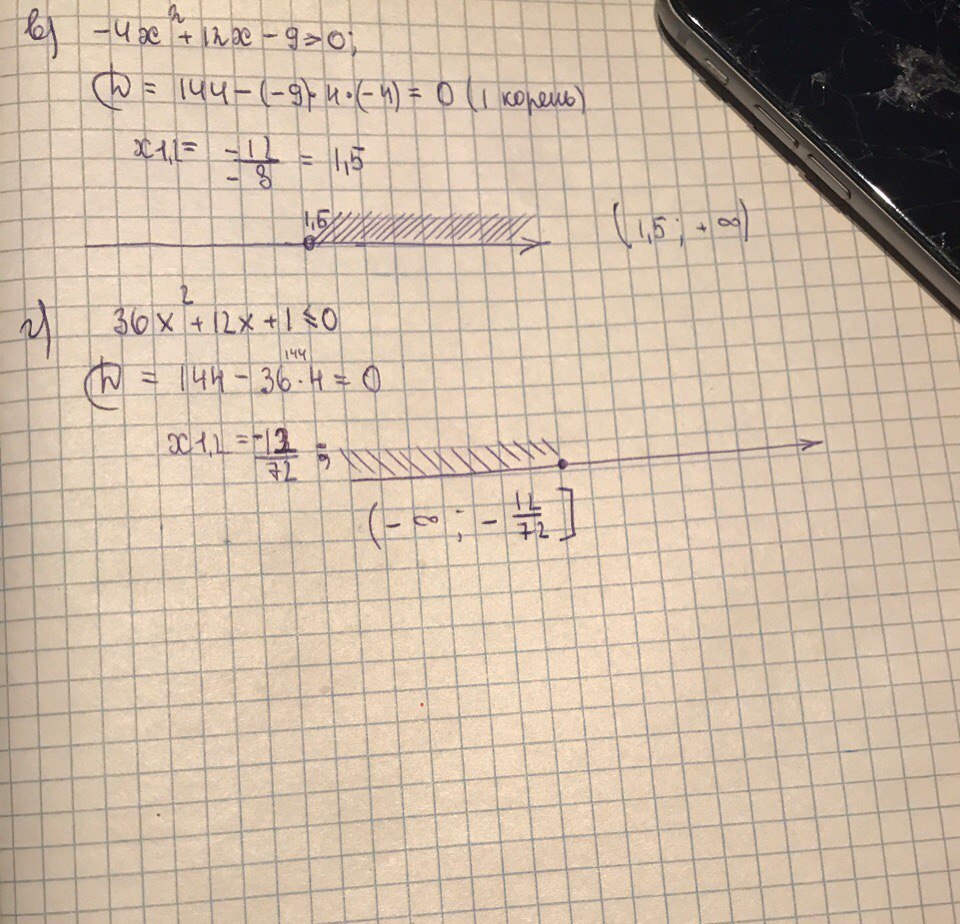 в) -4x² + 12x - 9 ≥ 0;
D = 144 - (-9)·4·(-4) = 0 (1 корень)
x1,2 = -12/-8 = 1,5
1,5
(1,5 ; +∞)
г) 36x² + 12x + 1 ≤ 0
144
D = 144 - 36·4 = 0
x1,2 = -12/72 ;
(-∞ ; -12/72]